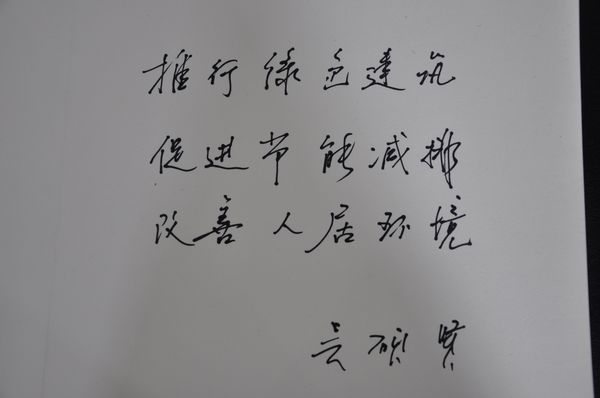 推行绿色建筑
促进节能减排
改善人居环境
吴硕贤